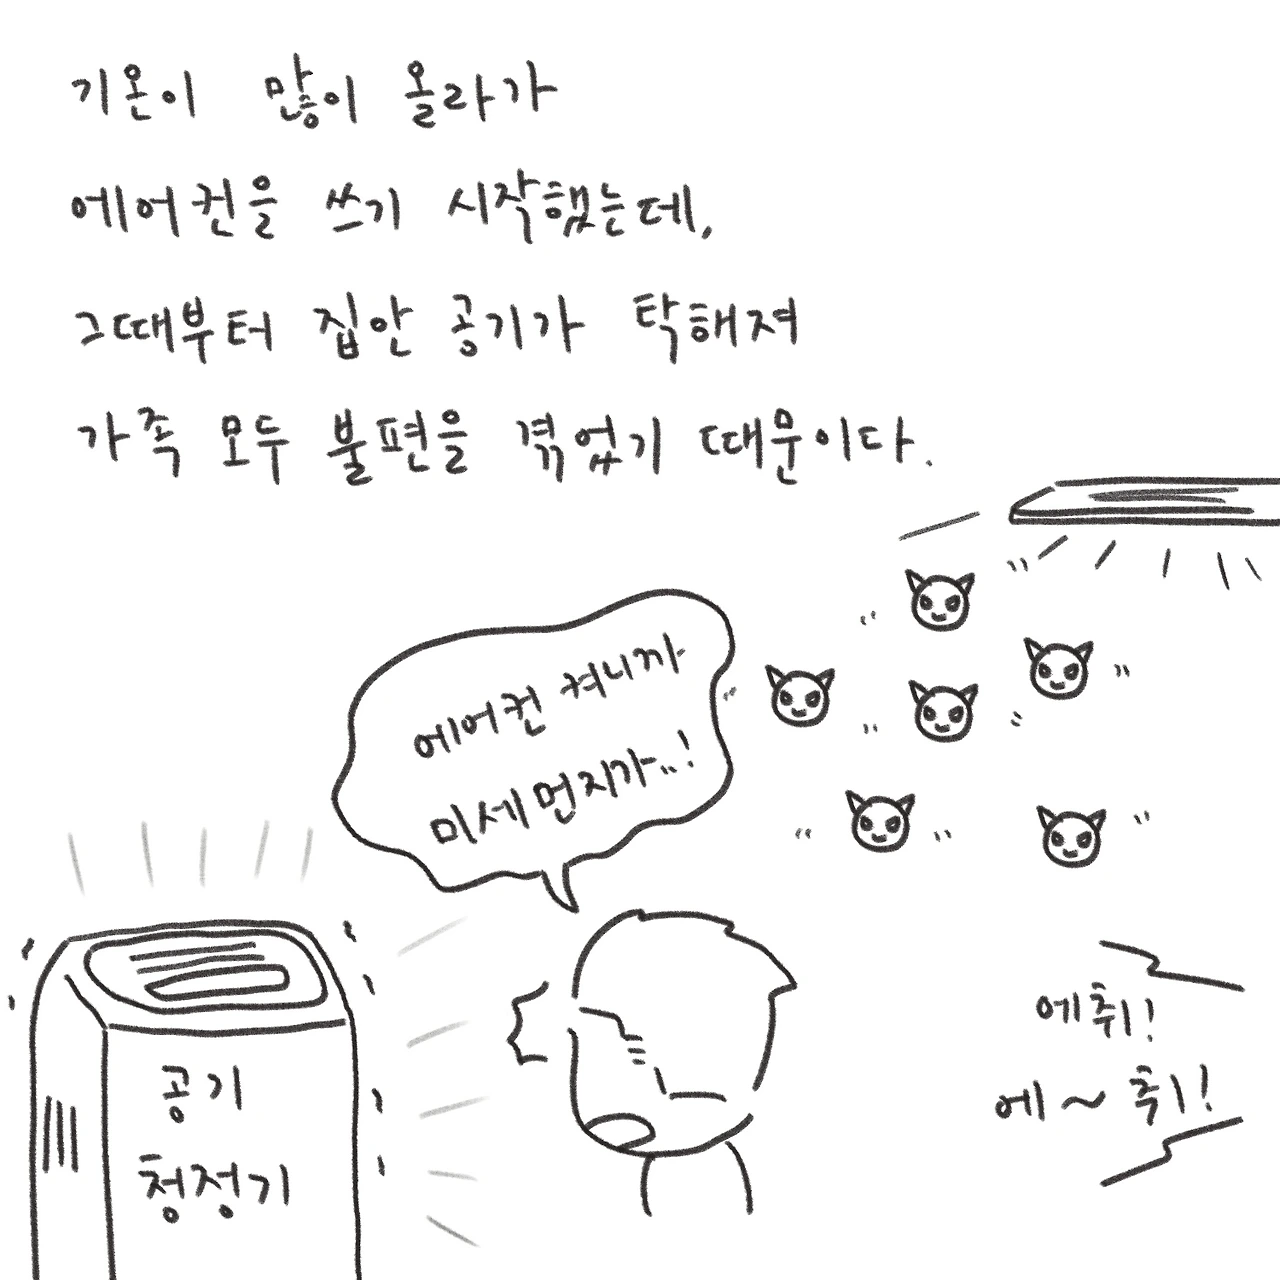 기온이 많이 올라가
에어컨을 쓰기 시작했는데,
그때부터 집안 공기가 탁해져
가족 모두 불편을 겪었기 때문이다.
에어컨 켜니까
미세먼지가..!
에취!
에~취!
공기
청정기